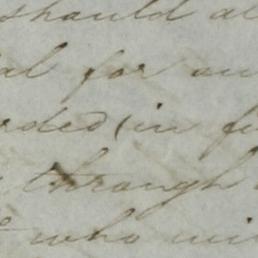 should al
al for an
rded (in fu
through
who wi